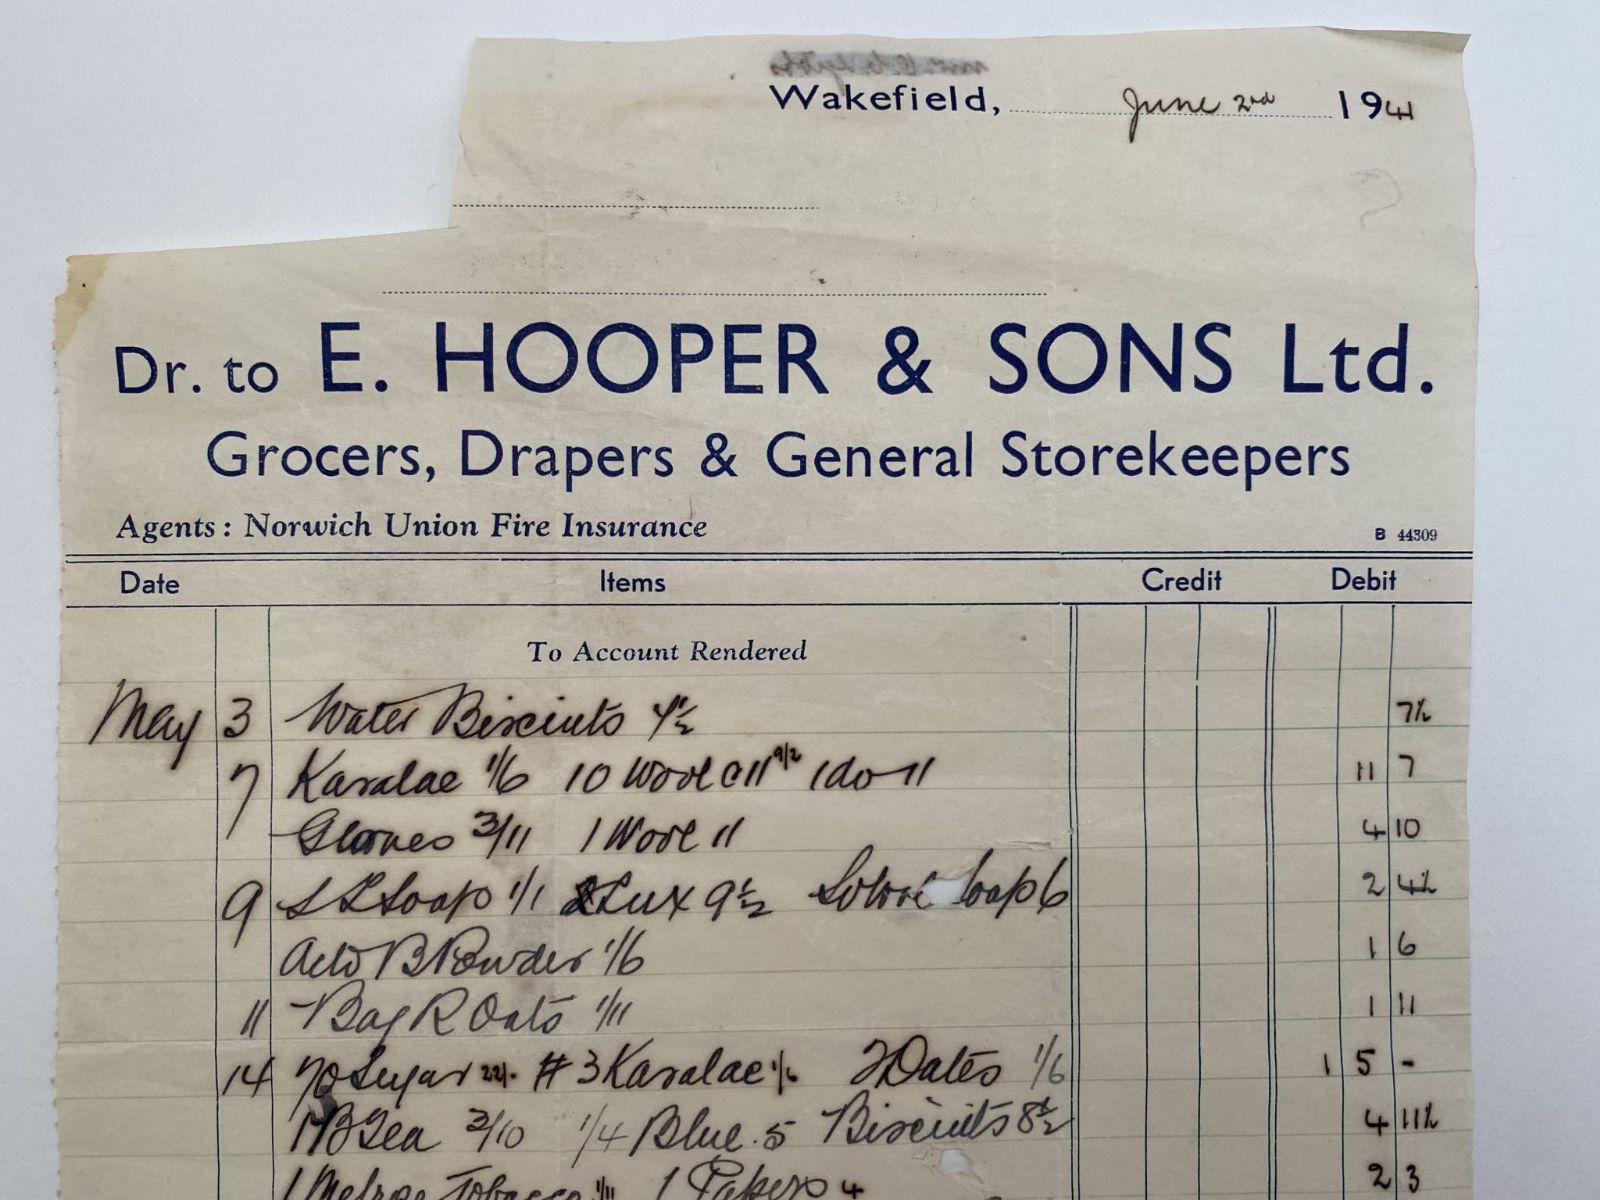 Wakefield, June 2nd 1941
Dr. to E. HOOPER & SONS Ltd.
Grocers, Drapers & General Storekeepers
Agents: Norwich Union Fire Insurance B 44309
Date Items Credit Debit
To Account Rendered
May 3 Water Biscuits 7½
7 Karalae 1/6 10 Wool 9/2 1 do 11 11 7
Gloves 3/11 1 Wool 11 4 10
9 S L Soap 1/1 Lux 9½ Soap 6 2 4½
B Powder 1/6 1 6
11 Bag R Oats 1/11 1 11
14 70 Sugar 22/- # 3 Karalae 1/6 2 Dates 1/6 1 5 -
1 B Tea 3/10 1/4 Blue 5 Biscuits 8½ 4 11½
1 Tobacco 1/11 1 Papers 4 2 3